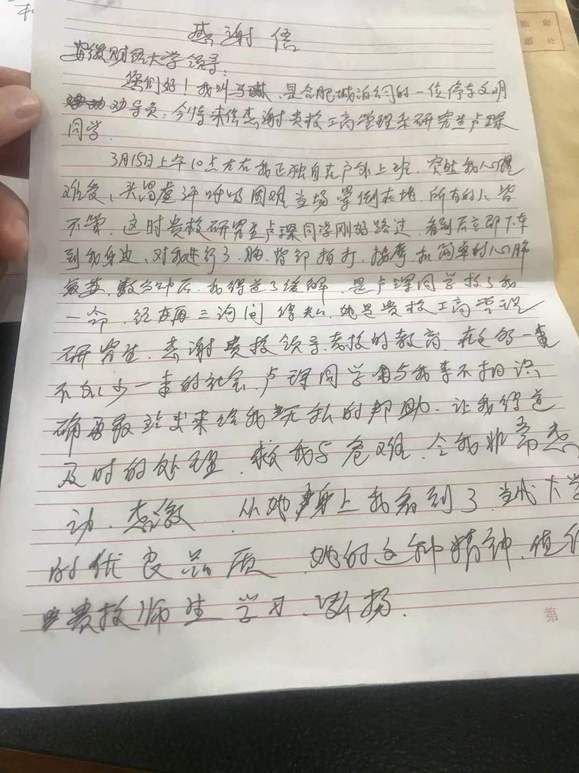 感谢信
安徽财经大学领导:
您们好!我叫马琳,是合肥城泊公司的一位停车文明
劝导员,今特来信感谢贵校工商管理系研究生卢琛
同学。
3月15日上午10点左右我正独自在户外上班,突然我心脏
难受,头晕 呼吸困难当场晕倒在地,所有的人皆
不管。这时贵校研究生卢琛同学刚好路过,看到后立即下车
到我身边,对我进行了胸、背部拍打、按摩和简单的心肺
复苏,数分钟后,我得到了缓解,是卢琛同学救了我
一命,经再三询问得知,她是贵校工商管理
研究生,感谢贵校领导、老校的教育,在多一事
不如少一事的社会,卢琛同学与我素不相识
确勇敢站出来给我无私的帮助,让我得到
及时的处理,救我与危难,令我非常感
动、感激,从她身上我看到了当代大学
的优良品质,她的这种精神,值得
贵校师生学习、弘扬.
第